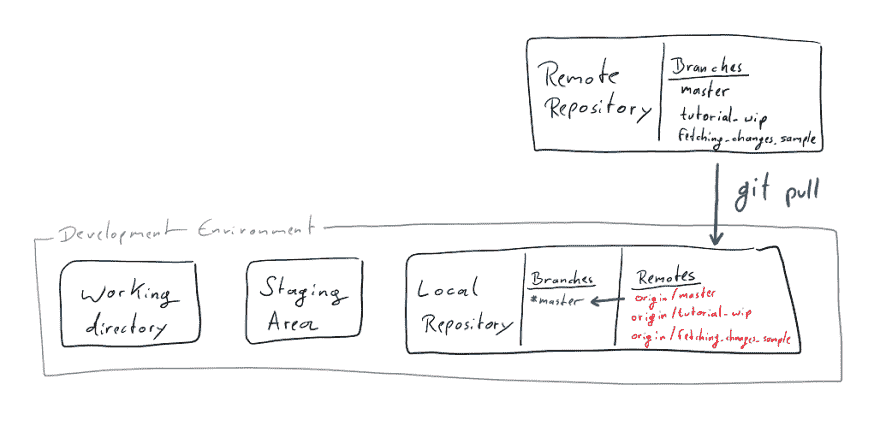 Remote
Repository
Branches
master
tutorial_wip
fetching_changes_sample
git pull
Development Environment
Working
directory
Staging
Area
Local
Repository
Branches
*master
Remotes
origin/master
origin/tutorial_wip
origin/fetching_changes_sample